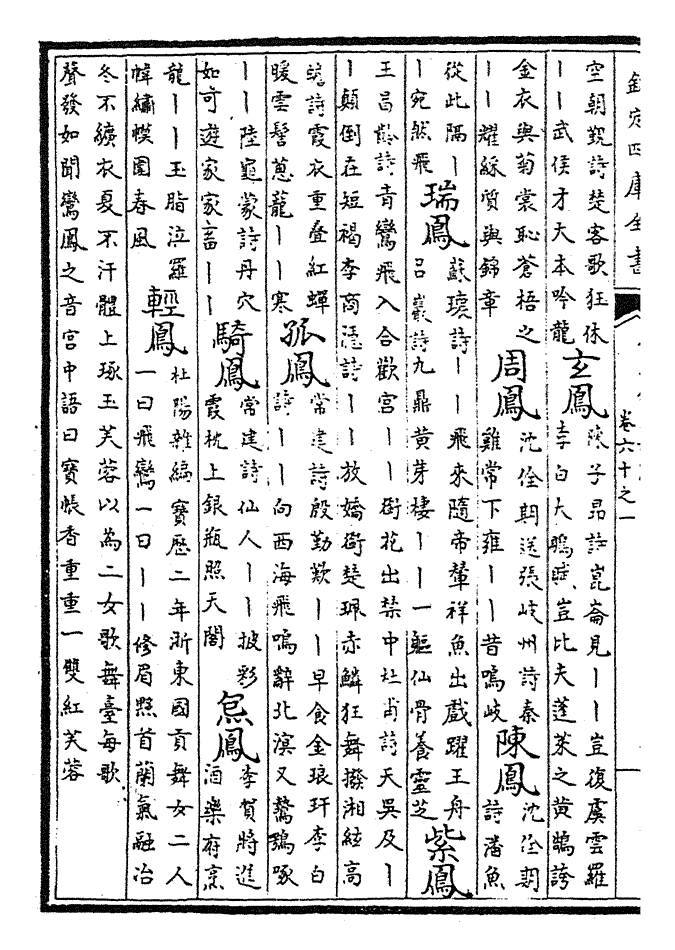 欽定四庫全書
卷六十之一
空朝覲詩楚客歌狂休
丨丨武侯才大本吟龍
玄鳳
陳子昂詩崑崙見丨丨豈復虞雲羅
李白大鵬賦豈比夫蓬萊之黄鵠誇
金衣與菊裳恥蒼梧之
丨丨耀綵質與錦章
周鳳
沈佺期送張岐州詩秦
雞常下雍丨丨昔鳴岐
陳鳳
沈佺期
詩潘魚
從此隔丨
丨宛然飛
瑞鳳
蘇瓌詩丨丨飛來隨帝輦祥魚出戲躍王舟
吕巖詩九鼎黄芽棲丨丨一軀仙骨養靈芝
紫鳳
王昌齡詩青鸞飛入合歡宫丨丨銜花出禁中杜甫詩天吳及丨
丨顛倒在短褐李商隱詩丨丨放嬌銜楚珮赤鱗狂舞撥湘絃高
蟾詩霞衣重疊紅蟬
暖雲髻蔥蘢丨丨寒
孤鳳
常建詩殷勤歎丨丨早食金琅玕李白
詩丨丨向西海飛鳴辭北溟又鷙鶚啄
丨丨陸龜蒙詩丹穴
如可遊家家畜丨丨
騎鳳
常建詩仙人丨丨披彩
霞枕上銀瓶照天閣
炰鳳
李賀將進
酒樂府烹
龍丨丨玉脂泣羅
幃繡幙圍春風
輕鳳
杜陽雜編寶歷二年浙東國貢舞女二人
一曰飛鸞一曰丨丨修眉黟首蘭氣融冶
冬不纊衣夏不汗體上琢玉芙蓉以為二女歌舞臺每歌
聲發如聞鸞鳳之音宫中語曰寶帳香重重一雙紅芙蓉